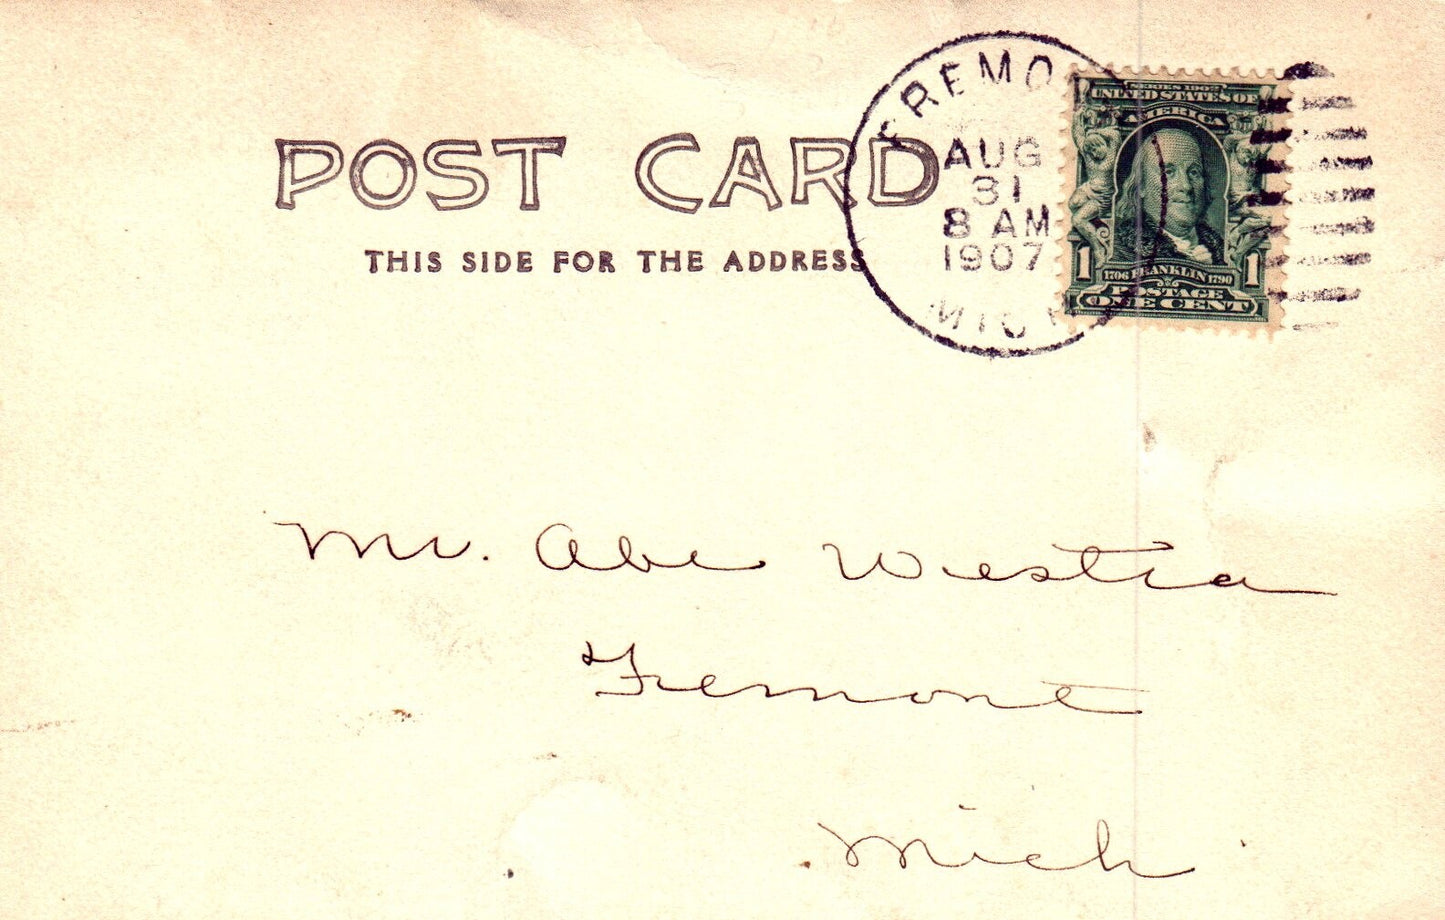 POST CARD
THIS SIDE FOR THE ADDRESS
FREMO
AUG
31
8 AM
1907
MICH
SERIES 1902
UNITED STATES OF
AMERICA
1 1706 FRANKLIN 1790 1
POSTAGE
ONE CENT
Mr. Abe Westra
Fremont
Mich